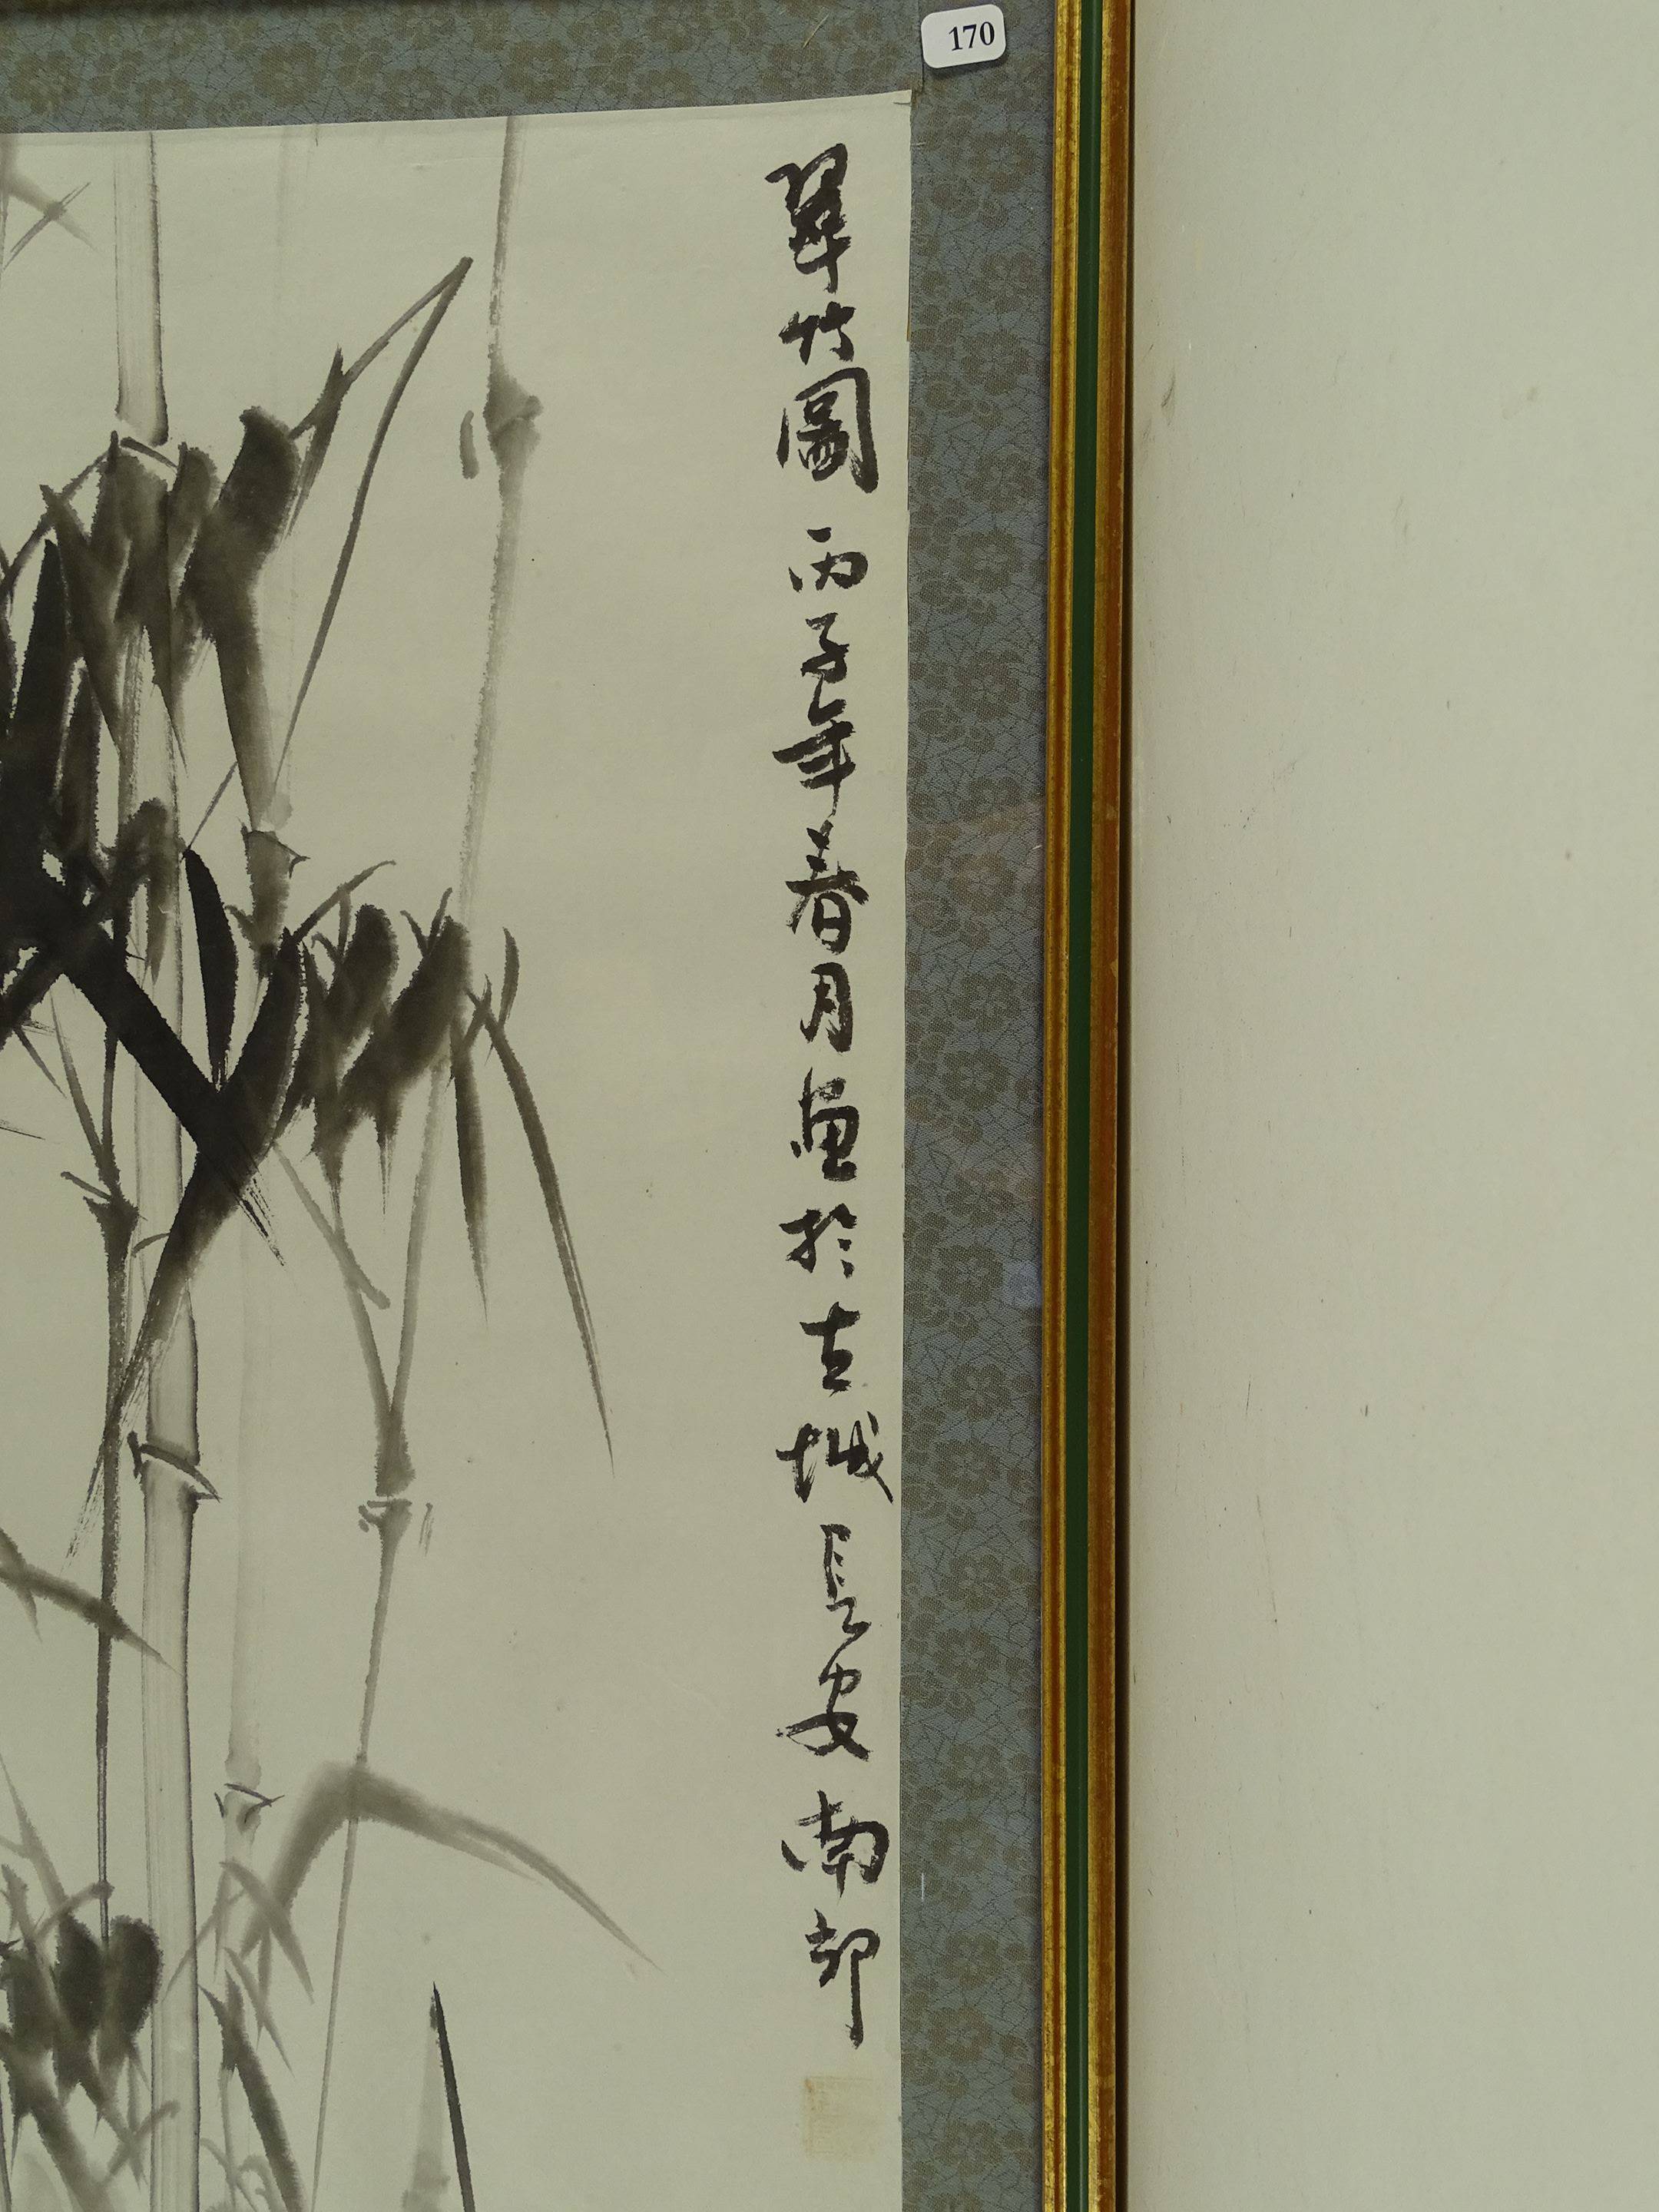 170
翠竹圖 丙子年春月畫於古城長安南郊